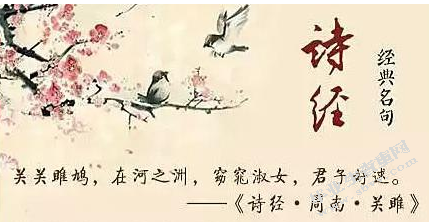 诗经
经典名句
关关雎鸠，在河之洲，窈窕淑女，君子好逑。
——《诗经·周南·关雎》